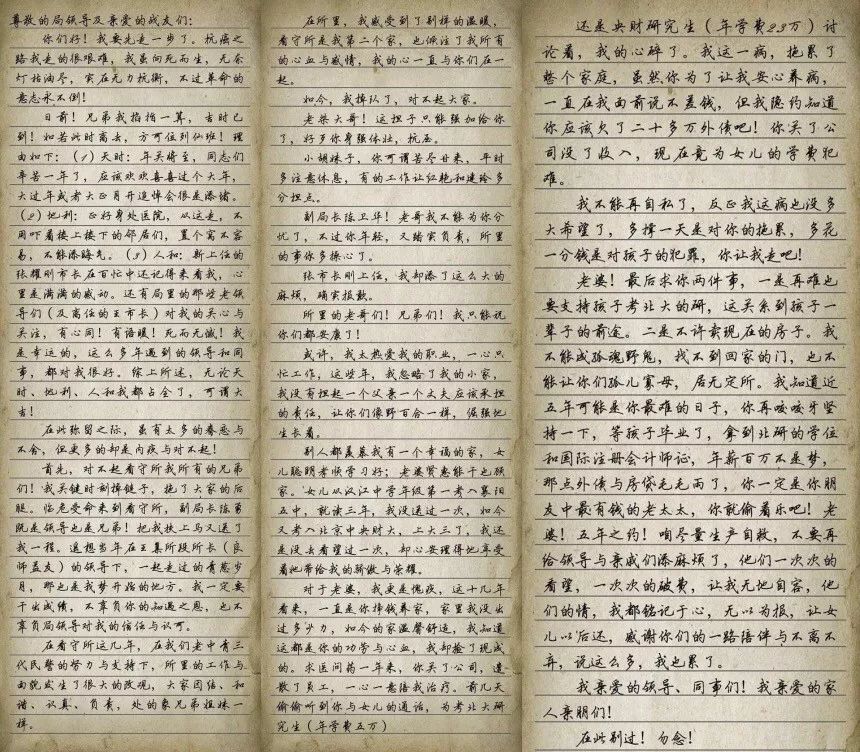 尊敬的局领导及亲爱的战友们：
你们好！我要先走一步了。抗癌之
路我走的很艰难，我虽向死而生，无奈
灯枯油尽，实在无力抗衡，不过革命的
意志永不倒！
日前！兄弟我掐指一算，吉时已
到！如若此时离去，方可位列仙班！理
由如下：（1）天时：年关将至，同志们
辛苦一年了，应该欢欢喜喜过个大年，
大过年或者大正月开追悼会很是添堵。
（2）地利：正好身处医院，从这走，不
用吓着楼上楼下的邻居们，置个窝不容
易，不能添晦气。（3）人和：新上任的
张耀刚市长在百忙中还记得来看我，心
里是满满的感动。还有局里的那些老领
导们（及离任的王市长）对我的关心与
关注，有心同！有语暖！死而无憾！我
是幸运的，这么多年遇到的领导和同
事，都对我很好。综上所述，无论天
时、地利、人和我都占全了，可谓大
吉！
在此弥留之际，虽有太多的眷恋与
不舍，但更多的却是内疚与对不起！
首先，对不起看守所我所有的兄弟
们！我关键时刻掉链子，拖了大家的后
腿。临危受命来到看守所，副局长陈勇
既是领导也是兄弟！把我扶上马又送了
我一程。遥想当年在王集阶段所长（良
师益友）的领导下，一起走过的青葱岁
月，那也是我梦开始的地方。我一定要
干出成绩，不辜负你的知遇之恩，也不
辜负局领导对我的信任与认可。
在看守所这几年，在我们老中青三
代民警的努力与支持下，所里的工作与
面貌发生了很大的改观，大家团结、和
谐、认真、负责，处的象兄弟姐妹一
样。
在所里，我感受到了别样的温暖，
看守所是我第二个家，也倾注了我所有
的心血与感情，我的心一直与你们在一
起。
如今，我掉队了，对不起大家。
老梁大哥！这担子只能强加给你
了，好歹你身强体壮，抗压。
小胡妹子，你可谓苦尽甘来，平时
多注意休息，有的工作让红艳和建玲多
分担点。
副局长陈卫华！老哥我不能为你分
忧了，不过你年轻，又踏实负责，所里
的事你多操心了。
张市长刚上任，我却添了这么大的
麻烦，确实抱歉。
所里的老哥们！兄弟们！我只能祝
你们都安康了！
或许，我太热爱我的职业，一心只
忙工作，这些年，我忽略了我的小家，
我没有担起一个父亲一个丈夫应该承担
的责任，让你们像野百合一样，倔强地
生长着。
别人都羡慕我有一个幸福的家，女
儿聪明孝顺学习好；老婆贤惠能干也顾
家。女儿从汉江中学年级第一考入襄阳
五中，就读三年，我没送过一次，如今
又考入北京中央财大，上大三了，我还
是没去看望过一次，却心安理得地享受
着她带给我的骄傲与荣耀。
对于老婆，我更是愧疚，这十几年
看来，一直是你挣钱养家，家里我没出
过多少力，如今的家温馨舒适，我知道
这都是你的功劳与心血，我却捡了现成
的。求医问药一年来，你关了公司，遣
散了员工，一心一意陪我治疗。前几天
偷偷听到你与女儿的通话，为考北大研
究生（年学费五万）
还是央财研究生（年学费23万）讨
论着，我的心碎了。我这一病，拖累了
整个家庭，虽然你为了让我安心养病，
一直在我面前说不差钱，但我隐约知道
你应该欠了二十多万外债吧！你关了公
司没了收入，现在竟为女儿的学费犯
难。
我不能再自私了，反正我这病也没多
大希望了，多撑一天是对你的拖累，多花
一分钱是对孩子的犯罪，你让我走吧！
老婆！最后求你两件事，一是再难也
要支持孩子考北大的研，这关系到孩子一
辈子的前途。二是不许卖现在的房子。我
不能成孤魂野鬼，找不到回家的门，也不
能让你们孤儿寡母，居无定所。我知道近
五年可能是你最难的日子，你再咬咬牙坚
持一下，等孩子毕业了，拿到北研的学位
和国际注册会计师证，年薪百万不是梦，
那点外债与房贷毛毛雨了，你一定是你朋
友中最有钱的老太太，你就偷着乐吧！老
婆！五年之约！咱尽量生产自救，不要再
给领导与亲戚们添麻烦了，他们一次次的
看望，一次次的破费，让我无地自容，他
们的情，我都铭记于心，无以为报，让女
儿以后还，感谢你们的一路陪伴与不离不
弃，说这么多，我也累了。
我亲爱的领导、同事们！我亲爱的家
人亲朋们！
在此别过！勿念！